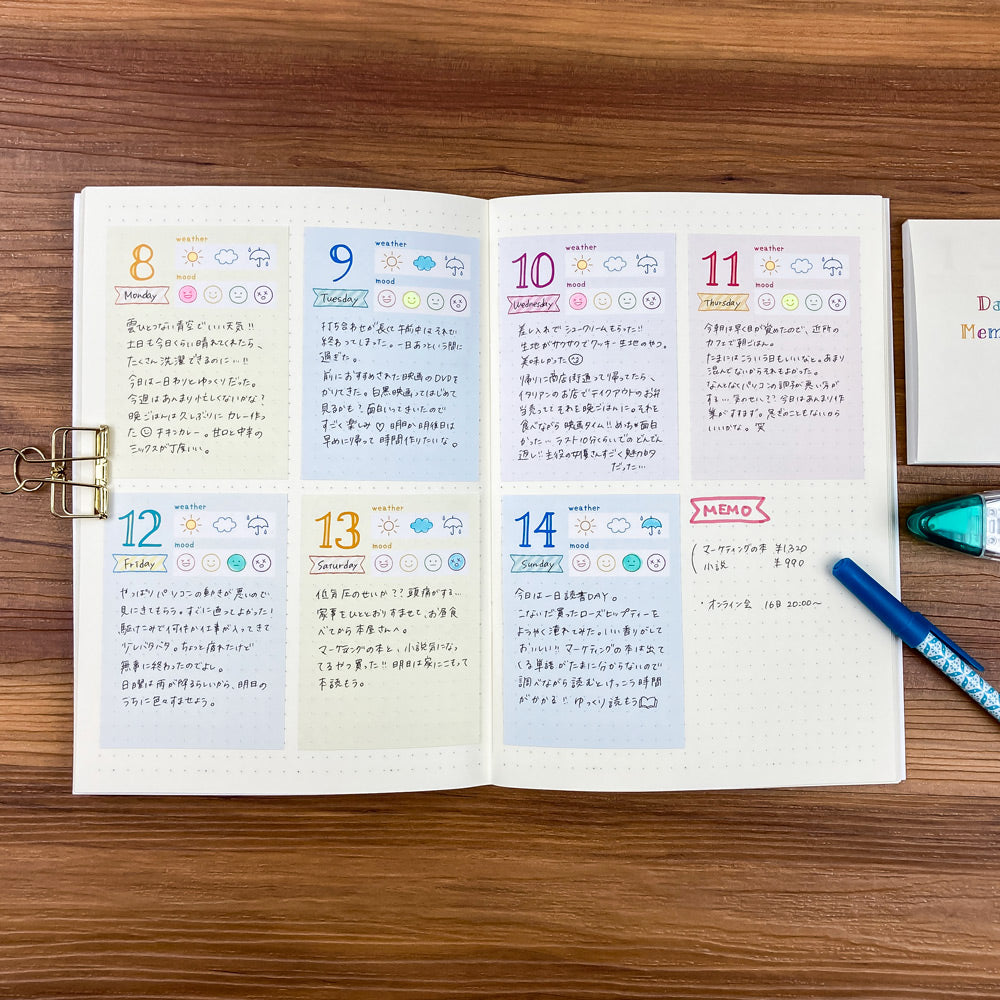 8
weather
mood
Monday
雲ひとつない青空でいい天気!!
土日も今日くらい晴れてくれたら、
たくさん洗濯できるのに…!!
今日は一日わりとゆっくりだった。
今週はあんまり忙しくないかな?
晩ごはんは久しぶりにカレー作っ
た チキンカレー。甘口と中辛の
ミックスが丁度いい。
9
weather
mood
Tuesday
打ち合わせが長くて午前中はそれで
終わってしまった。一日あっという間に
過ぎた。
前におすすめされた映画のDVDを
かりてきた。白黒映画ってはじめて
見るかも? 面白いってきいたので
すごく楽しみ♡ 明日か明後日は
早めに帰って時間作りたいな。
10
weather
mood
Wednesday
差し入れでシュークリームもらった!!
生地がサクサクでクッキー生地のやつ。
美味しかった
帰りに商店街通って帰ってたら、
イタリアンのお店でテイクアウトのお弁
当売ってて それを晩ごはんに。それを
食べながら映画タイム!! めっちゃ面白
かった… ラスト10分くらいでのどんでん
返し!! 主役の女優さんすごく魅力的
だった…
11
weather
mood
Thursday
今朝は早く目が覚めたので、近所の
カフェで朝ごはん。
たまにはこういう日もいいなと。あまり
混んでないからそれもよかった。
なんとなくパソコンの調子が悪い気が
する… 気のせい?? 今日はあんまり作
業がすすまず。急ぎのこともないから
いいかな。笑
12
weather
mood
Friday
やっぱりパソコンの動きが悪いので
見にきてもらう。すぐに直ってよかった!
駆けこみで何件か仕事が入ってきて
少しバタバタ。ちょっと疲れたけど
無事に終わったのでよし。
日曜は雨が降るらしいから、明日の
うちに色々すませよう。
13
weather
mood
Saturday
低気圧のせいか?? 頭痛がする…
家事をひととおりすませて、お昼食
べてから本屋さんへ。
マーケティングの本と、小説気になっ
てるやつ買った!! 明日は家にこもって
本読もう。
14
weather
mood
Sunday
今日は一日読書DAY。
こないだ買ったローズヒップティーを
ようやく淹れてみた。いい香りがして
おいしい!! マーケティングの本は出て
くる単語がたまに分からないので
調べながら読むとけっこう時間
がかかる!! ゆっくり読もう
MEMO
マーケティングの本 ¥1,320
小説 ¥990
・オンライン会 16日 20:00〜
Da
Mem